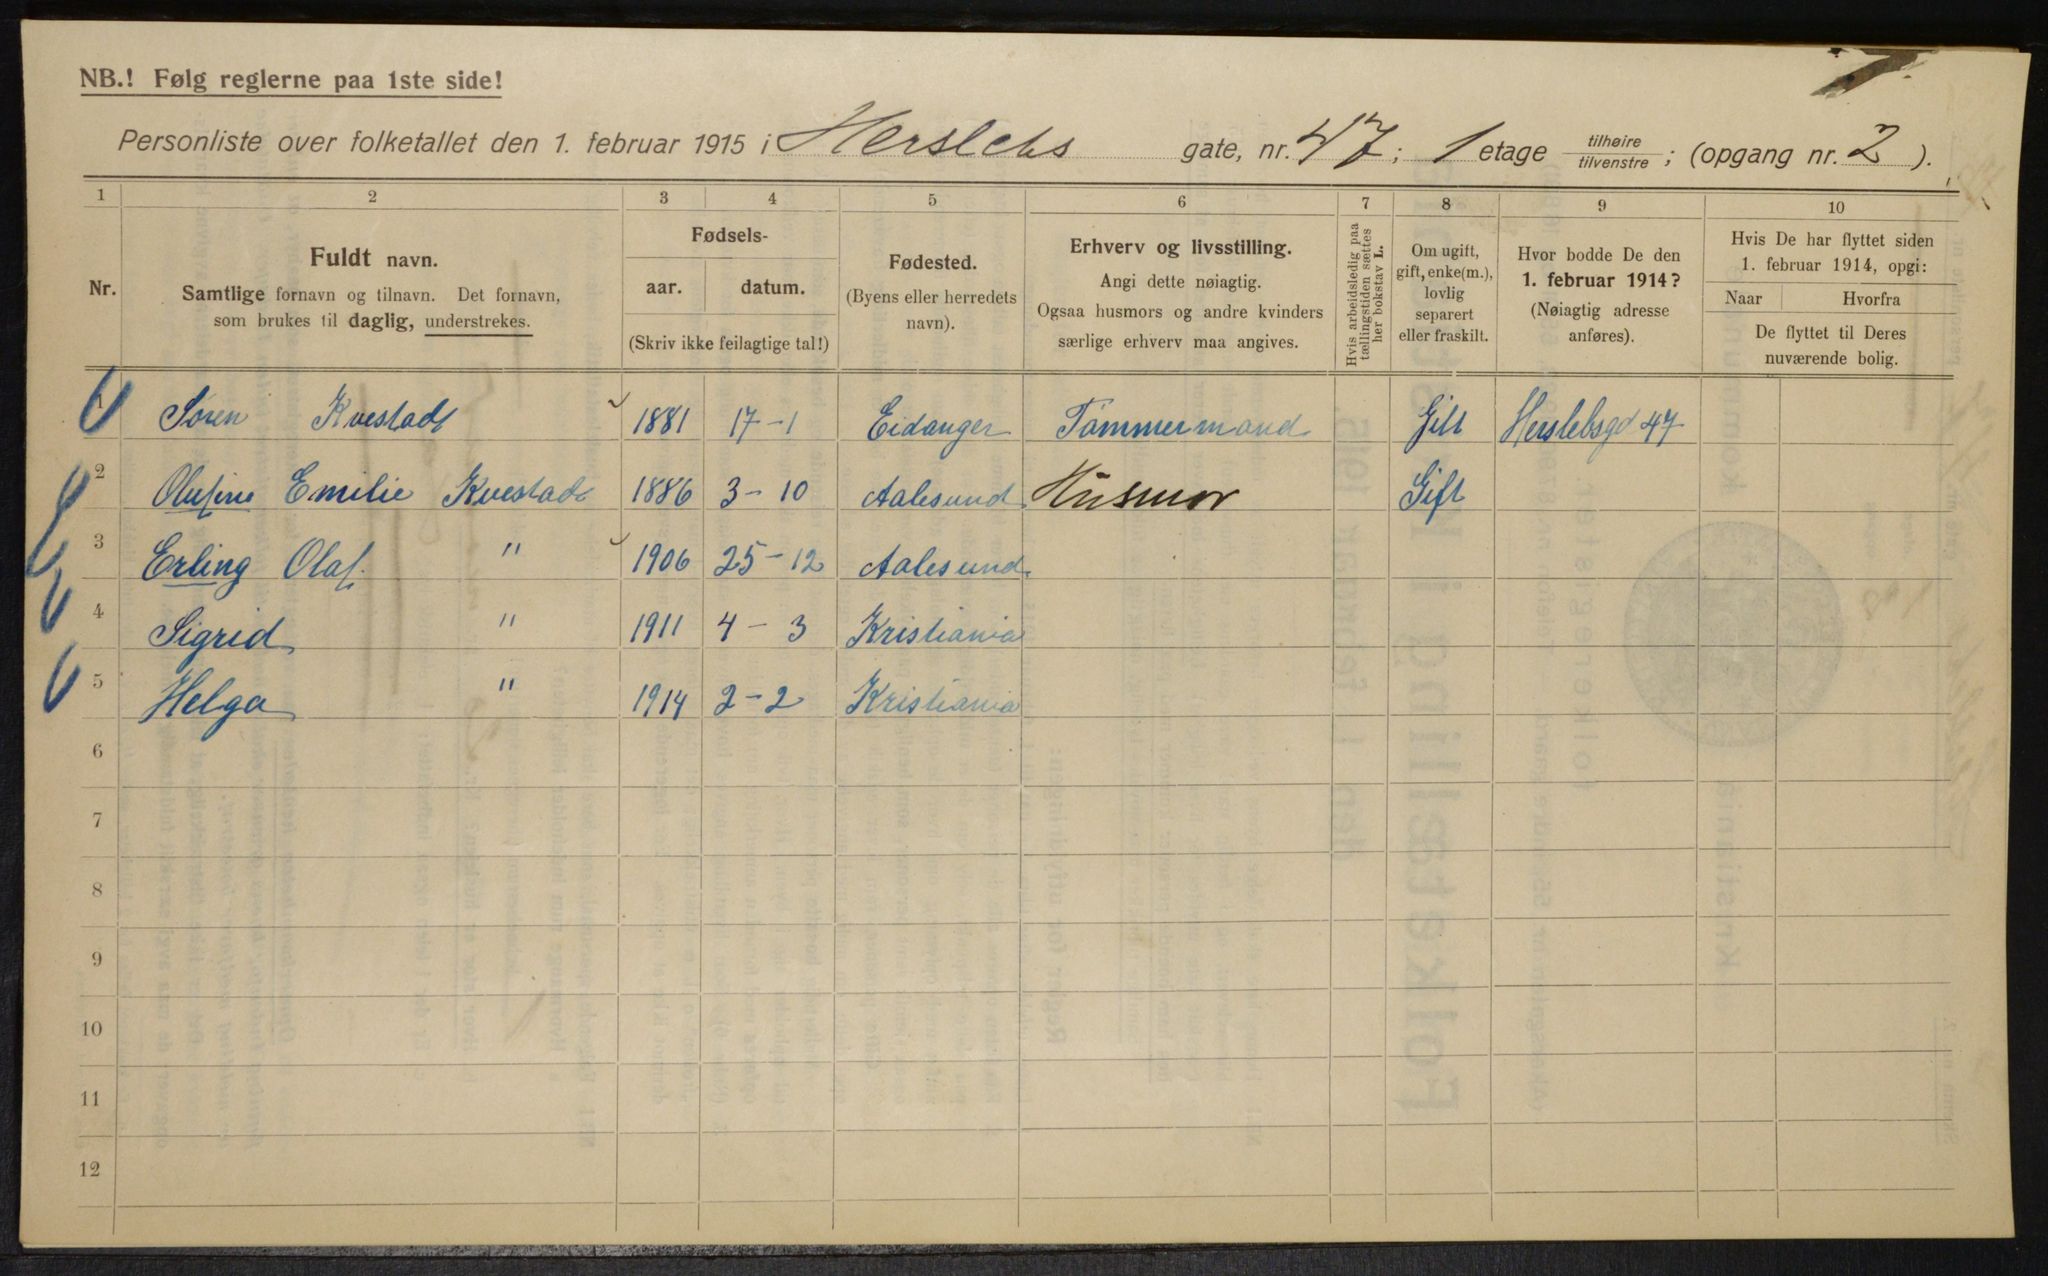 NB.! Følg reglerne paa 1ste side!
Personliste over folketallet den 1. februar 1915 i Herslebs gate, nr. 47; 1 etage tilhøire tilvenstre; (opgang nr. 2).
1 2 3 4 5 6 7 8 9 10
Nr.
Fuldt navn.
Samtlige fornavn og tilnavn. Det fornavn,
som brukes til daglig, understrekes.
Fødsels-
aar. datum.
(Skriv ikke feilagtige tal!)
Fødested.
(Byens eller herredets
navn).
Erhverv og livsstilling.
Angi dette nøiagtig.
Ogsaa husmors og andre kvinders
særlige erhverv maa angives.
Hvis arbeidsledig paa
tællingstiden sættes
her bokstav L.
Om ugift,
gift, enke(m.),
lovlig
separert
eller fraskilt.
Hvor bodde De den
1. februar 1914?
(Nøiagtig adresse
anføres).
Hvis De har flyttet siden
1. februar 1914, opgi:
Naar Hvorfra
De flyttet til Deres
nuværende bolig.
1 Søren Kvestad 1881 17-1 Eidanger Tømmermand Gift Herslebsgd 47
2 Olufine Emilie Kvestad 1886 3-10 Aalesund Husmor Gift
3 Erling Olaf. " 1906 25-12 Aalesund
4 Sigrid " 1911 4-3 Kristiania
5 Helga " 1914 2-2 Kristiania
6
7
8
9
10
11
12